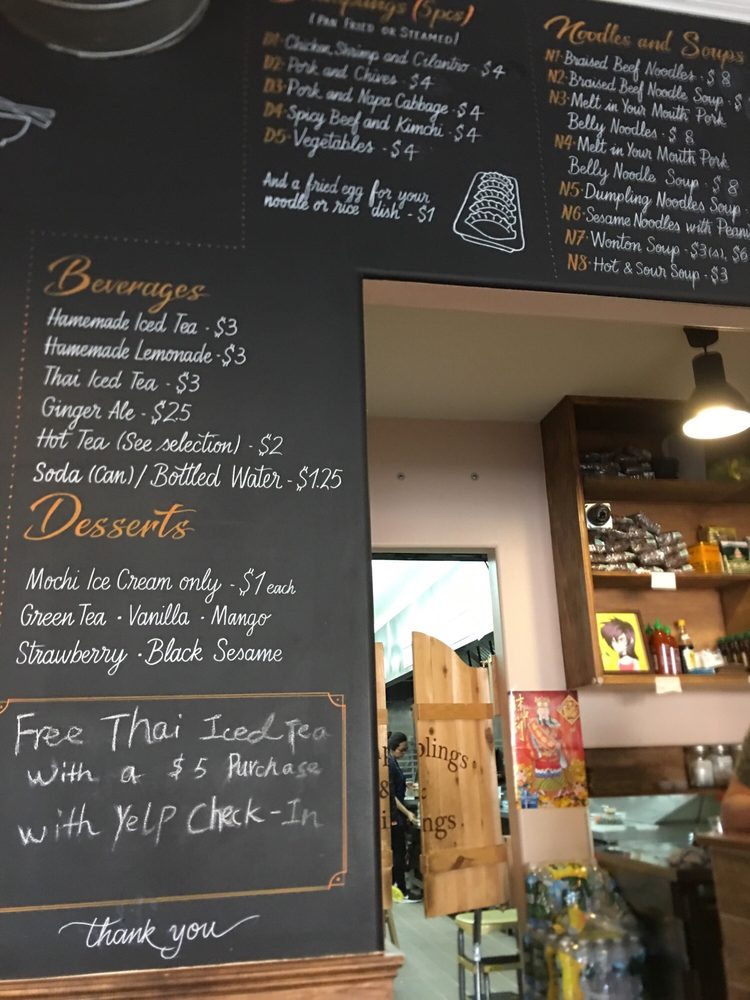 (5pcs)
(Pan Fried or Steamed)
D1· Chicken, Shrimp and Cilantro · $4
D2· Pork and Chives · $4
D3· Pork and Napa Cabbage · $4
D4· Spicy Beef and Kimchi · $4
D5· Vegetables · $4
And a fried egg for your
noodle or rice dish - $1
Noodles and Soups
N1· Braised Beef Noodles · $8
N2· Braised Beef Noodle Soup · $
N3· Melt in Your Mouth Pork
Belly Noodles · $8
N4· Melt in Your Mouth Pork
Belly Noodle Soup · $8
N5· Dumpling Noodles Soup
N6· Sesame Noodles with
N7· Wonton Soup · $3(s), $6
N8· Hot & Sour Soup · $3
Beverages
Hamemade Iced Tea - $3
Hamemade Lemonade - $3
Thai Iced Tea - $3
Ginger Ale - $2.5
Hot Tea (See selection) - $2
Soda (Can) / Bottled Water - $1.25
Desserts
Mochi Ice Cream only - $1 each
Green Tea · Vanilla · Mango
Strawberry · Black Sesame
Free Thai Iced Tea
with a $5 Purchase
with Yelp Check-In
thank you
&